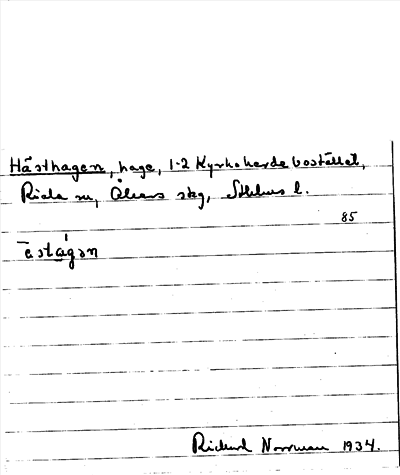 Hästhagen, hage, 1-2 Kyrkoherdebostället,
Riala sn, Åkers skg, Sthlms l.
85
ēstágən
Richard Norrman 1934.